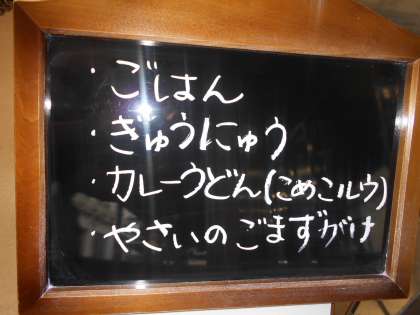 ・ごはん
・ぎゅうにゅう
・カレーうどん(こめこルウ)
・やさいのごまずがけ